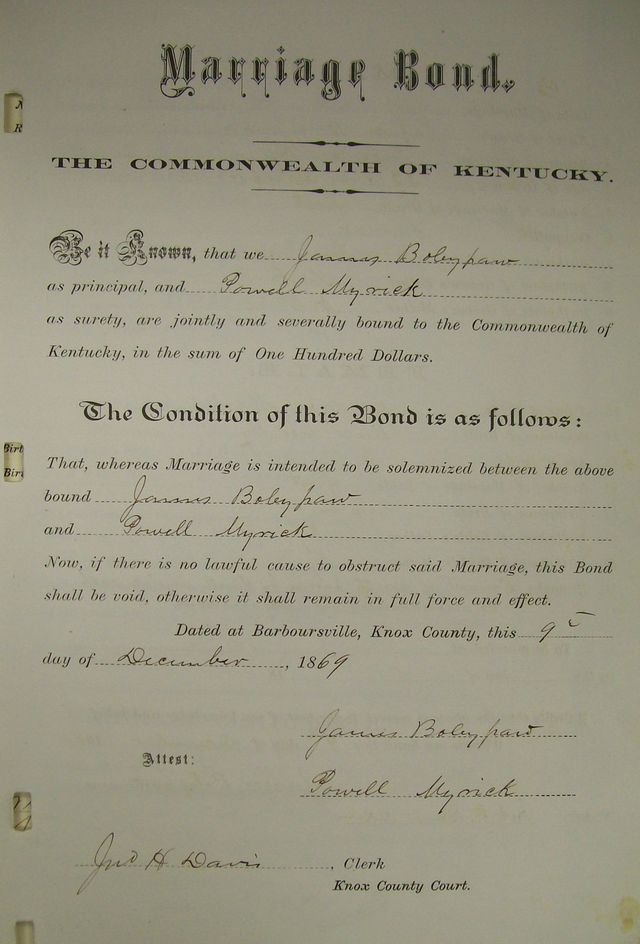 Marriage Bond.
THE COMMONWEALTH OF KENTUCKY.
Be it Known, that we James Boleypaw
as principal, and Powell Myrick
as surety, are jointly and severally bound to the Commonwealth of
Kentucky, in the sum of One Hundred Dollars.
The Condition of this Bond is as follows:
That, whereas Marriage is intended to be solemnized between the above
bound James Boleypaw
and Powell Myrick
Now, if there is no lawful cause to obstruct said Marriage, this Bond
shall be void, otherwise it shall remain in full force and effect.
Dated at Barboursville, Knox County, this 9
day of December, 1869
James Boleypaw
Attest:
Powell Myrick
Jno H Davis, Clerk
Knox County Court.